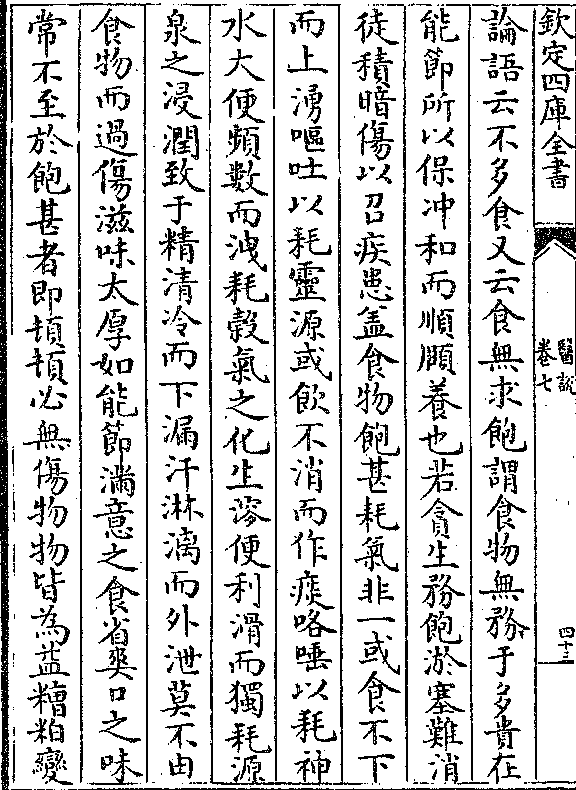 欽定四庫全書
醫說
卷七
四十三
論語云不多食又云食無求飽謂食物無務于多貴在
能節所以保冲和而順頤養也若貪生務飽淤塞難消
徒積暗傷以召疾患盖食物飽甚耗氣非一或食不下
而上湧嘔吐以耗靈源或飲不消而作痰咯唾以耗神
水大便頻數而洩耗穀氣之化生溲便利滑而獨耗源
泉之浸潤致于精清冷而下漏汗淋漓而外泄莫不由
食物而過傷滋味太厚如能節滿意之食省爽口之味
常不至於飽甚者即頓頓必無傷物物皆為益糟粕變